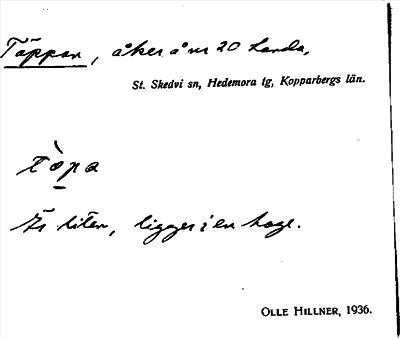 Täppan, åker å nr 20 Landa,
St. Skedvi sn, Hedemora tg, Kopparbergs län.
tò̠pa
Är liten, ligger i en hage.
OLLE HILLNER, 1936.